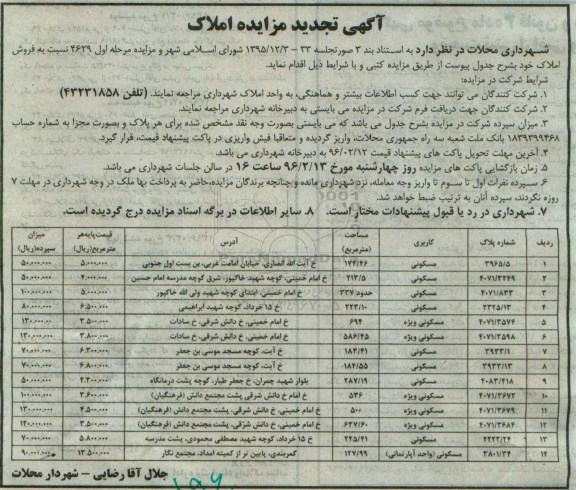 آگهی تجدید مزایده املاک
شهرداری محلات در نظر دارد به استناد بند ۳ صورتجلسه ۳۳ – ۱۳۹۵/۱۲/۳ شورای اسلامی شهر و مزایده مرحله اول ۴۶۲۹ نسبت به فروش
املاک خود بشرح جدول پیوست از طریق مزایده کتبی و با شرایط ذیل اقدام نماید.
شرایط شرکت در مزایده:
۱. شرکت کنندگان می توانند جهت کسب اطلاعات بیشتر و هماهنگی، به واحد املاک شهرداری مراجعه نمایند. (تلفن ۴۳۲۳۱۸۵۸)
۲. شرکت کنندگان جهت دریافت فرم شرکت در مزایده می بایستی به دبیرخانه شهرداری مراجعه نمایند.
۳. میزان سپرده شرکت در مزایده بشرح جدول می باشد که می بایستی بصورت وجه نقد مشخص شده برای هر پلاک و بصورت مجزا به شماره حساب
۱۸۳۹۳۹۹۴۶۸ بانک ملت شعبه سه راه جمهوری محلات، واریز گردیده و متعاقبا فیش واریزی در پاکت پیشنهاد قیمت، قرار گیرد.
۴. آخرین مهلت تحویل پاکت های پیشنهاد قیمت ۹۶/۰۲/۱۲ به دبیرخانه شهرداری می باشد.
۵. زمان بازگشایی پاکت های مزایده روز چهارشنبه مورخ ۹۶/۲/۱۳ ساعت ۱۶ در سالن جلسات شهرداری می باشد.
۶. سپرده نفرات اول تا سوم تا واریز وجه معامله، نزد شهرداری مانده و چنانچه برندگان مزایده، حاضر به پرداخت بها ملک در وجه شهرداری در مهلت ۷
روزه نگردند، سپرده آنان به ترتیب ضبط خواهد شد.
۷. شهرداری در رد یا قبول پیشنهادات مختار است. ۸. سایر اطلاعات در برگه اسناد مزایده درج گردیده است.
ردیف شماره پلاک کاربری مساحت (مترمربع) آدرس قیمت پایه هر مترمربع(ریال) میزان سپرده(ریال)
۱ ۳۹۶۵/۵ مسکونی ۱۷۴/۴۶ خ آیت الله انصاری، خیابان امامت غربی، بن بست اول جنوبی ۵.۰۰۰.۰۰۰ ۵۰.۰۰۰.۰۰۰
۲ ۴۰۷۱/۳۳۴۹ مسکونی ۲۱۳/۵ خ امام خمینی، کوچه شهید خاکپور، شرق کوچه مدرسه امام حسین ۴.۰۰۰.۰۰۰ ۵۰.۰۰۰.۰۰۰
۳ ۴۰۷۱/۸۳۳ مسکونی حدود ۳۳۷ خ امام خمینی، ابتدای کوچه شهید ولی الله خاکپور ۵.۰۰۰.۰۰۰ ۱۰۰.۰۰۰.۰۰۰
۴ ۳۳۲۵/۱۳ مسکونی ۲۲۳/۱۰ خ ۱۵ خرداد، کوچه شهید ابراهیمی ۶.۵۰۰.۰۰۰ ۸۰.۰۰۰.۰۰۰
۵ ۴۰۷۱/۳۵۷۴ مسکونی ویژه ۶۹۴ خ امام خمینی، خ دانش شرقی، خ سادات ۳.۵۰۰.۰۰۰ ۱۳۰.۰۰۰.۰۰۰
۶ ۴۰۷۱/۳۵۹۸ مسکونی ویژه ۵۸۶/۴۵ خ امام خمینی، خ دانش شرقی، خ سادات ۳.۸۰۰.۰۰۰ ۱۳۰.۰۰۰.۰۰۰
۷ ۳۹۳۳/۱ مسکونی ۱۸۳/۴۱ خ آیت، کوچه مسجد موسی بن جعفر ۶.۳۰۰.۰۰۰ ۷۰.۰۰۰.۰۰۰
۸ ۳۹۳۳/۱۳ مسکونی ۱۸۴/۵۵ خ آیت، کوچه مسجد موسی بن جعفر ۶.۸۰۰.۰۰۰ ۷۰.۰۰۰.۰۰۰
۹ ۲۰۸۳/۴۱۸ مسکونی ۲۸۷/۱۹ بلوار شهید چمران، خ جعفر طیار، کوچه پشت درمانگاه ۲.۳۰۰.۰۰۰ ۵۰.۰۰۰.۰۰۰
۱۰ ۴۰۷۱/۳۶۷۲ مسکونی ویژه ۵۳۶ خ امام خ دانش شرقی پشت مجتمع دانش (فرهنگیان) ۳.۶۰۰.۰۰۰ ۱۰۰.۰۰۰.۰۰۰
۱۱ ۴۰۷۱/۳۶۷۹ مسکونی ویژه ۵۰۰ خ امام خمینی، خ دانش شرقی، پشت مجتمع دانش (فرهنگیان) ۴.۵۰۰.۰۰۰ ۱۳۰.۰۰۰.۰۰۰
۱۲ ۴۰۷۱/۳۶۸۴ مسکونی ویژه ۶۳۷/۶۰ خ امام خمینی، خ دانش شرقی، پشت مجتمع دانش (فرهنگیان) ۳.۵۰۰.۰۰۰ ۱۲۰.۰۰۰.۰۰۰
۱۳ ۲۲۲۲/۲۴ مسکونی ۲۲۵/۴۱ خ ۱۵ خرداد، کوچه شهید مصطفی محمودی، پشت مدرسه ۵.۸۰۰.۰۰۰ ۷۰.۰۰۰.۰۰۰
۱۴ ۳۸۰۱/۳۴ مسکونی (واحد آپارتمانی) ۱۲۷/۹۹ کمربندی، پایین تر از کمیته امداد، مجتمع نگار ۱۳.۵۰۰.۰۰۰ ۹۰.۰۰۰.۰۰۰
جلال آقا رضایی – شهردار محلات